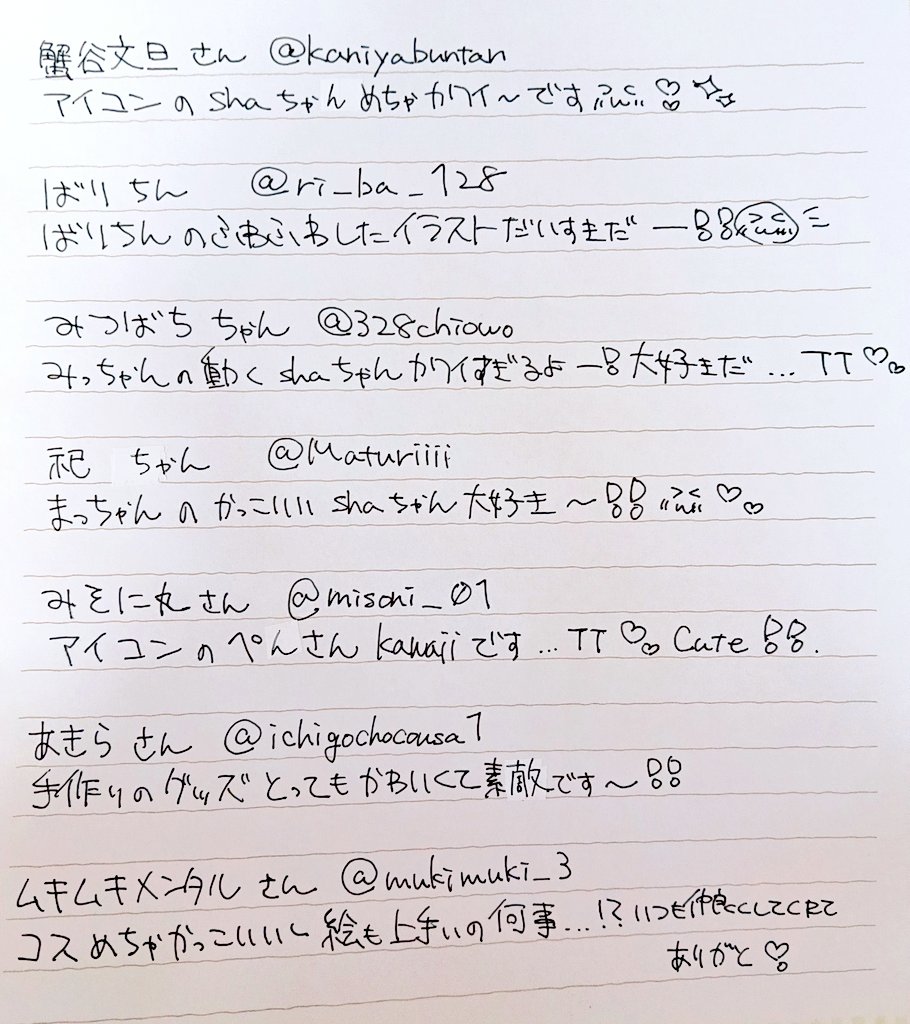 蟹谷文旦 さん @kaniyabuntan
アイコンの shaちゃん めちゃカワイ〜です ♡ ✧
ばりちん @ri_ba_128
ばりちんのふわふわしたイラストだいすきだー!!
みつばちちゃん @328chiowo
みっちゃんの動く shaちゃんカワイすぎるよー! 大好きだ... TT ♡
祀ちゃん @Maturiiii
まっちゃんのかっこいい shaちゃん大好き〜!! ♡
みそに丸さん @misoni_01
アイコンのぺんさん kawaii です... TT ♡ Cute !!.
あきらさん @ichigochocousa1
手作りのグッズとってもかわいくて素敵です〜!!
ムキムキメンタルさん @mukimuki_3
コスめちゃかっこいいし絵も上手いの何事...!? いつも仲良くしてくれて
ありがと ♡